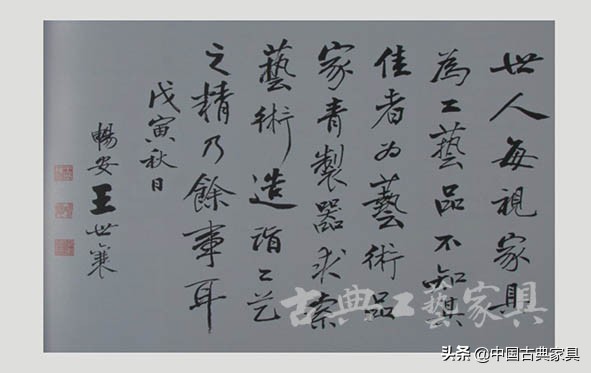 世人每視家具
為工藝品不知其
佳者为藝術品
家青製器求索
藝術造诣工艺
之精乃餘事耳
戊寅秋日
暢安王世襄
古典工藝家具
头条 @中国古典家具